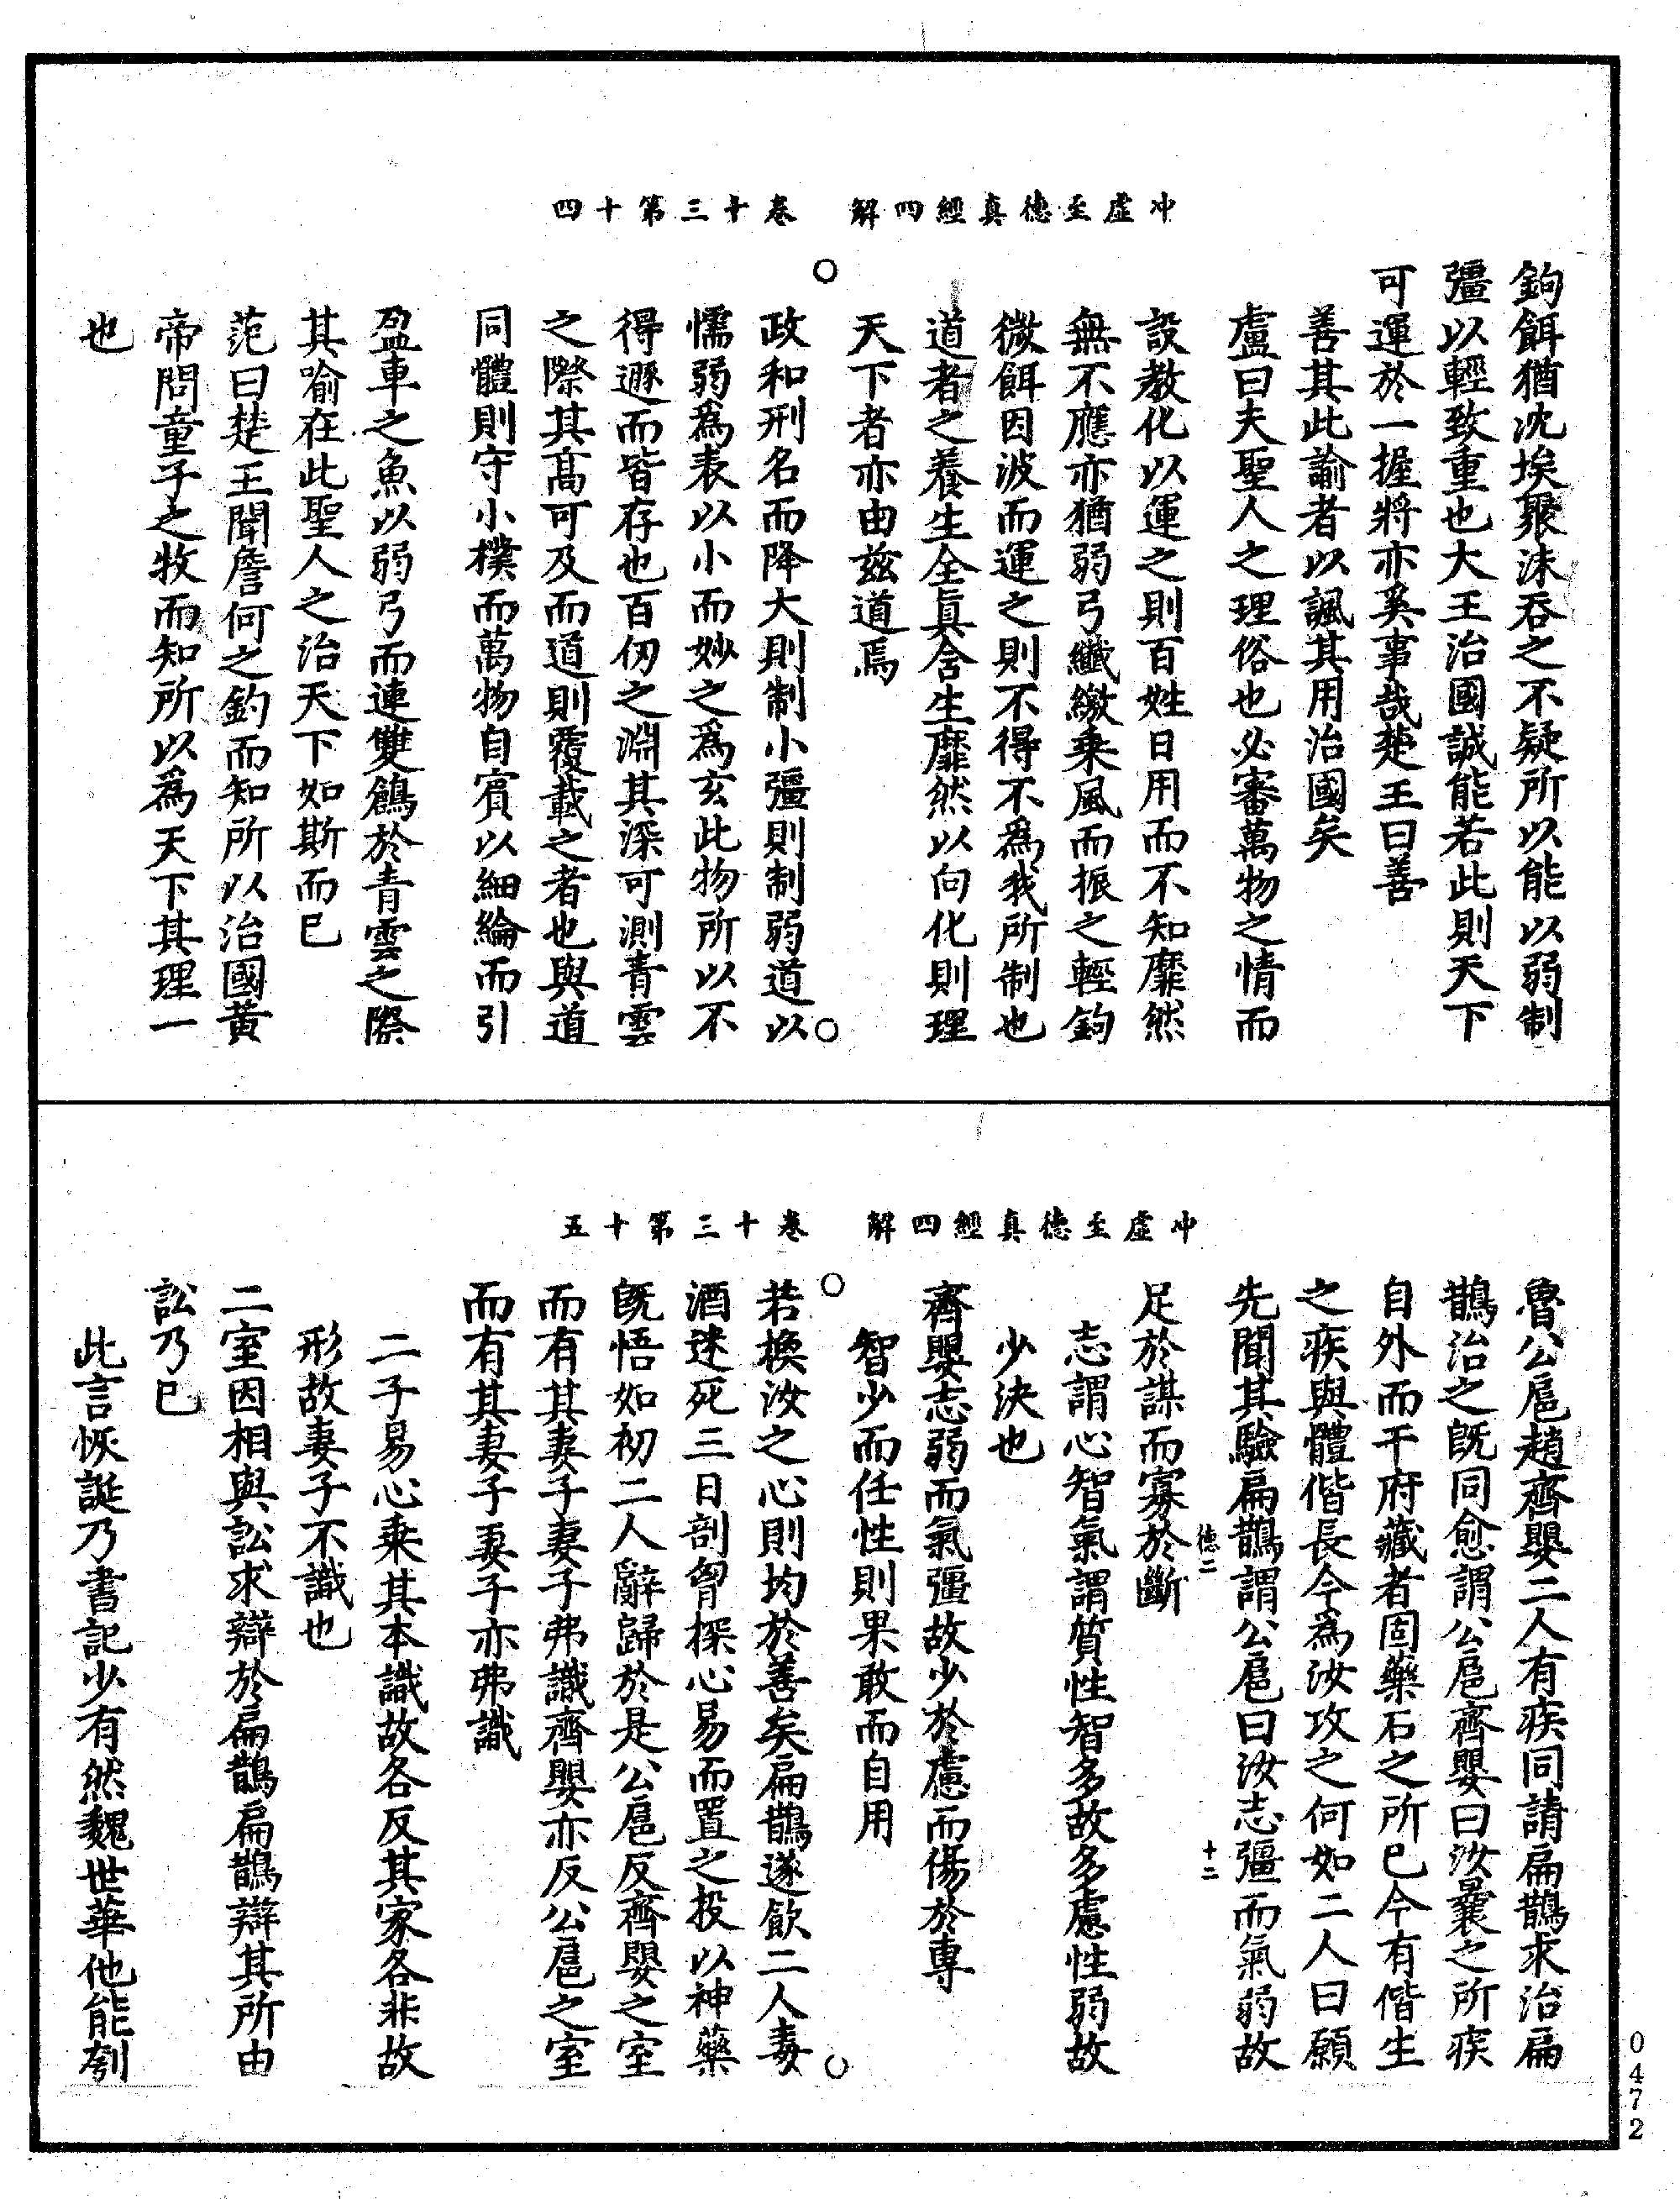 冲虛至德真經四解　卷十三第十四
鉤餌猶沈埃聚沫吞之不疑所以能以弱制
彊以輕致重也大王治國誠能若此則天下
可運於一握將亦奚事哉楚王曰善
善其此諭者以諷其用治國矣
盧曰夫聖人之理俗也必審萬物之情而
設教化以運之則百姓日用而不知靡然
無不應亦猶弱弓纖繳乘風而振之輕鉤
微餌因波而運之則不得不為我所制也
道者之養生全真含生靡然以向化則理
天下者亦由兹道焉
政和刑名而降大則制小彊則制弱道以
懦弱為表以小而妙之為玄此物所以不
得遯而皆存也百仞之淵其深可測青雲
之際其高可及而道則覆載之者也與道
同體則守小樸而萬物自賓以細綸而引
盈車之魚以弱弓而連雙鶬於青雲之際
其喻在此聖人之治天下如斯而已
范曰楚王聞詹何之釣而知所以治國黃
帝問童子之牧而知所以為天下其理一
也
冲虛至德真經四解　卷十三第十五
魯公扈趙齊嬰二人有疾同請扁鵲求治扁
鵲治之既同愈謂公扈齊嬰曰汝曩之所疾
自外而干府藏者固藥石之所已今有偕生
之疾與體偕長今為汝攻之何如二人曰願
先聞其驗扁鵲謂公扈曰汝志彊而氣弱故
德二　十二
足於謀而寡於斷
志謂心智氣謂質性智多故多慮性弱故
少決也
齊嬰志弱而氣彊故少於慮而傷於專
智少而任性則果敢而自用
若換汝之心則均於善矣扁鵲遂飲二人毒
酒迷死三日剖胷探心易而置之投以神藥
既悟如初二人辭歸於是公扈反齊嬰之室
而有其妻子妻子弗識齊嬰亦反公扈之室
而有其妻子妻子亦弗識
二子易心乘其本識故各反其家各非故
形故妻子不識也
二室因相與訟求辯於扁鵲扁鵲辯其所由
訟乃已
此言恢誕乃書記少有然魏世華他能刳
0472